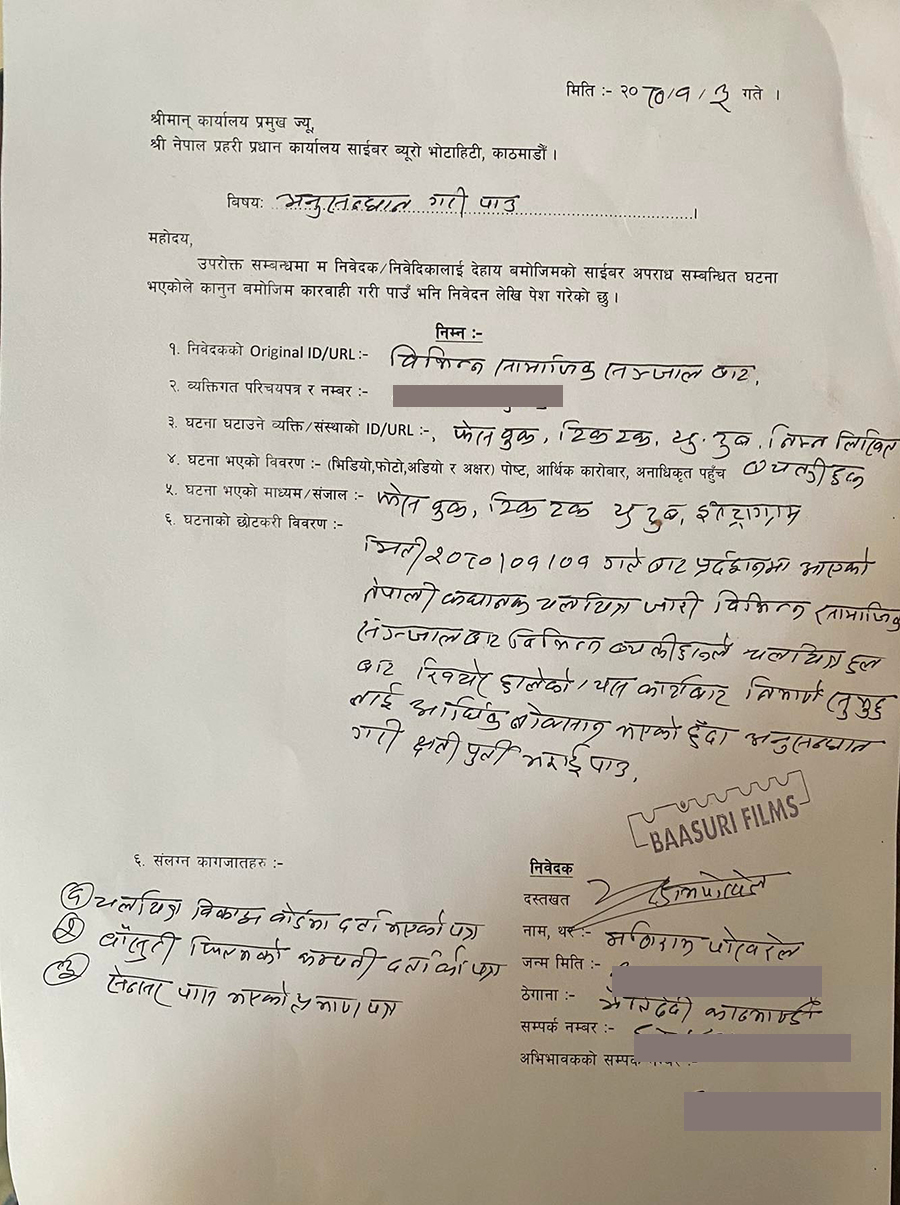 मिति :- २०८०/१/३ गते ।
श्रीमान् कार्यालय प्रमुख ज्यू,
श्री नेपाल प्रहरी प्रधान कार्यालय साईबर ब्यूरो भोटाहिटी, काठमाडौं ।
विषय: अनुसन्धान गरी पाउ ।
महोदय,
उपरोक्त सम्बन्धमा म निवेदक/निवेदिकालाई देहाय बमोजिमको साईबर अपराध सम्बन्धित घटना
भएकोले कानुन बमोजिम कारवाही गरी पाउँ भनि निवेदन लेखि पेश गरेको छु ।
निम्न :-
१. निवेदकको Original ID/URL :- विभिन्न सामाजिक सञ्जाल बाट,
२. व्यक्तिगत परिचयपत्र र नम्बर :-
३. घटना घटाउने व्यक्ति/संस्थाको ID/URL :-, फेस बुक, टिक टक, यु. टुब, निम्न लिखित
४. घटना भएको विवरण :- (भिडियो,फोटो,अडियो र अक्षर) पोष्ट, आर्थिक कारोबार, अनाधिकृत पहुँच
५. घटना भएको माध्यम/संजाल :- फेस बुक, टिक टक यु टुब, इस्ट्राग्राम
६. घटनाको छोटकरी विवरण :-
मिती २०८०|०१|०१ गते बाट प्रर्दशनमा आएको
नेपाली कथानक चलचित्र जारी विभिन्न सामाजिक
सञ्जाल बाट विभिन्न ब्यक्तीहरुले चलचित्र हल
बाट खिचेर हालेको । यस कार्यबाट निर्माण समुह
लाई आर्थिक नोक्सान भएको हुँदा अनुसन्धान
गरी क्षती पुर्ती भराई पाउ,
BAASURI FILMS
६. संलग्न कागजातहरु :-
① चलचित्र विकास बोर्डमा दर्ता भएको पत्र
② बाँसुरी फिल्मको कम्पनी दर्ताको पत्र
③ सेन्सर पास भएको प्रमाण पत्र
निवेदक
दस्तखत
नाम, थर :- मनिराम पोखरेल
जन्म मिति :-
ठेगाना :- काठमाण्डौ
सम्पर्क नम्बर :-
अभिभावकको सम्पर्क